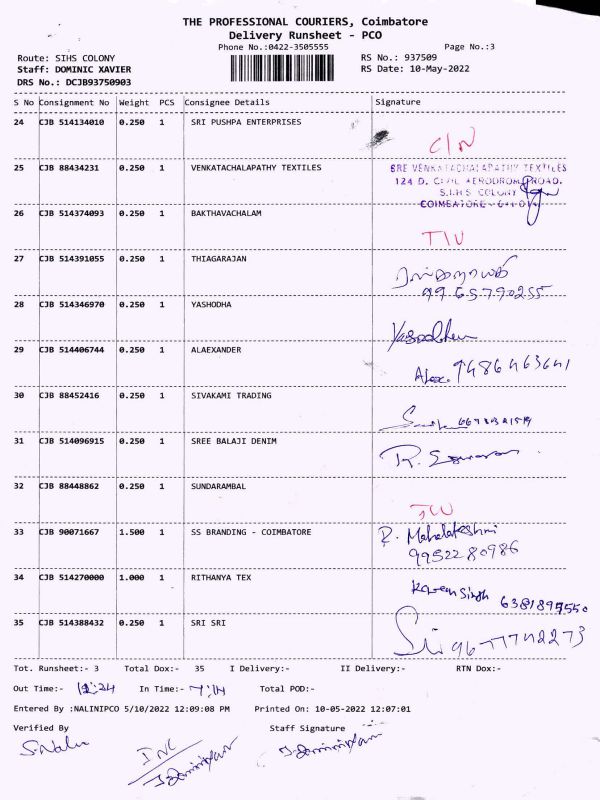 THE PROFESSIONAL COURIERS, Coimbatore
Delivery Runsheet - PCO
Phone No.:0422-3505555 Page No.:3
Route: SIHS COLONY RS No.: 937509
Staff: DOMINIC XAVIER RS Date: 10-May-2022
DRS No.: DCJB93750903
S No Consignment No Weight PCS Consignee Details Signature
24 CJB 514134010 0.250 1 SRI PUSHPA ENTERPRISES
25 CJB 88434231 0.250 1 VENKATACHALAPATHY TEXTILES SRE VENKATACHALAPATHY TEXTILES
124 D. CIVIL AERODROM ROAD.
S.I.H.S COLONY
26 CJB 514374093 0.250 1 BAKTHAVACHALAM COIMBATORE
27 CJB 514391055 0.250 1 THIAGARAJAN
9965790255
28 CJB 514346970 0.250 1 YASHODHA
29 CJB 514406744 0.250 1 ALAEXANDER
Alex. 9486463641
30 CJB 88452416 0.250 1 SIVAKAMI TRADING
31 CJB 514096915 0.250 1 SREE BALAJI DENIM
32 CJB 88448862 0.250 1 SUNDARAMBAL
33 CJB 90071667 1.500 1 SS BRANDING - COIMBATORE R. Mahalakshmi
9952280986
34 CJB 514270000 1.000 1 RITHANYA TEX
35 CJB 514388432 0.250 1 SRI SRI
Tot. Runsheet:- 3 Total Dox:- 35 I Delivery:- II Delivery:- RTN Dox:-
Out Time:- 12:24 In Time:- 7:14 Total POD:-
Entered By :NALINIPCO 5/10/2022 12:09:08 PM Printed On: 10-05-2022 12:07:01
Verified By Staff Signature